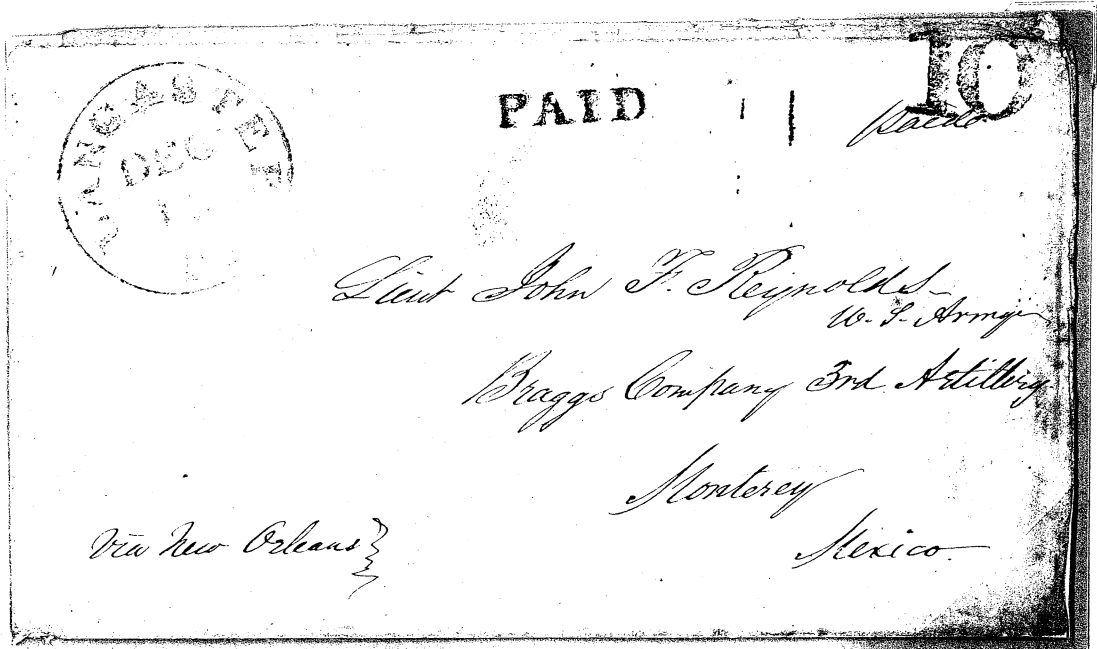 LANCASTER
DEC
PAID
10
paid
Lieut John F. Reynolds
U. S. Army
Braggs Company 3rd Artillery
Monterey
Mexico
via New Orleans